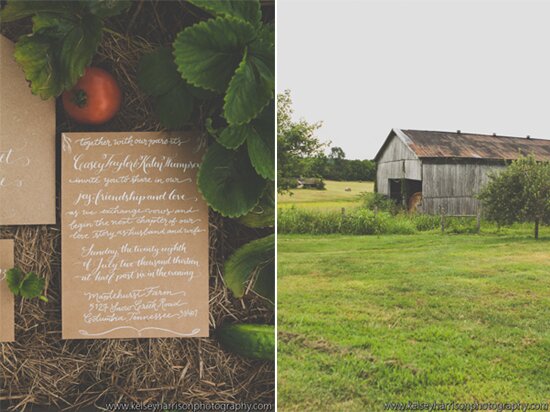 together with our parents
Casey Taylor & Katey Thompson
invite you to share in our
joy, friendship and love
as we exchange vows and
begin the next chapter of our
love story as husband and wife
Sunday, the twenty eighth
of July two thousand thirteen
at half past six in the evening
Maplehurst Farm
Snow Creek Road
Columbia, Tennessee 38401
www.kelseyharrisonphotography.com
www.kelseyharrisonphotography.com